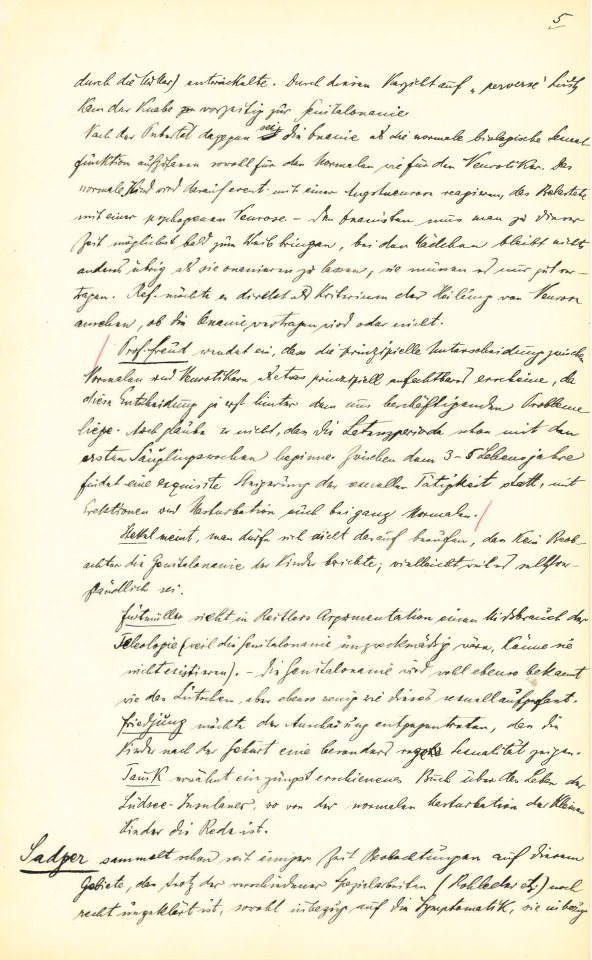 5
durch die (Eltern) entwickelte. Durch diesen Verzicht auf „perverse" Lust
kam der Knabe zu vorzeitig zur Genitalonanie.
Nach der Pubertät dagegen sei die Onanie als die normale biologische Sexual-
funktion aufzufassen sowohl für den Normalen wie für den Neurotiker. Das
normale Kind wird darauf event. mit einer Angstneurose reagieren, das Belastete
mit einer psychogenen Neurose. – Den Onanisten muss man zu dieser
Zeit möglichst bald zum Weib bringen, bei den Mädchen bleibt nichts
anders übrig als sie onanieren zu lassen, sie müssen es nur gut ver-
tragen. Ref. möchte es direkt als Kriterium der Heilung von Neurose
ansehen, ob die Onanie vertragen wird oder nicht.
Prof. Freud wendet ein, dass die prinzipielle Unterscheidung zwischen
Normalen und Neurotikern als etwas prinzipiell anfechtbares erscheine, da
diese Entscheidung ja erst hinter dem uns beschäftigenden Probleme
liege. Auch glaube er nicht, dass die Latenzperiode schon mit den
ersten Säuglingswochen beginne. Zwischen dem 3–5 Lebensjahre
findet eine exquisite Steigerung der sexuellen Tätigkeit statt, mit
Erektionen und Masturbation auch bei ganz Normalen.
Stekel meint, man dürfe sich nicht darauf berufen, dass kein Beob-
achter die Genitalonanie der Kinder berichte; vielleicht weil es selbstver-
ständlich sei.
Furtmüller sieht in Reitlers Argumentation einen Missbrauch der
Teleologie (weil die Genitalonanie unzweckmässig wäre, könne sie
nicht existieren). – Die Genitalonanie wird wohl ebenso bekannt
wie das Lutschen, aber ebenso wenig wie dieses sexuell aufgefasst.
Friedjung möchte der Anschauung entgegentreten, dass die
Kinder nach der Geburt eine besonders rege Sexualität zeigen.
Tausk erwähnt ein jüngst erschienenes Buch über das Leben der
Südsee-Insulaner, wo von der normalen Masturbation der kleinen
Kinder die Rede ist.
Sadger sammelt schon seit einiger Zeit Beobachtungen auf diesem
Gebiete, das trotz der verschiedenen Spezialarbeiten (Rohleder etz.) noch
recht ungeklärt ist, sowohl inbezug auf die Symptomatik, wie inbezug